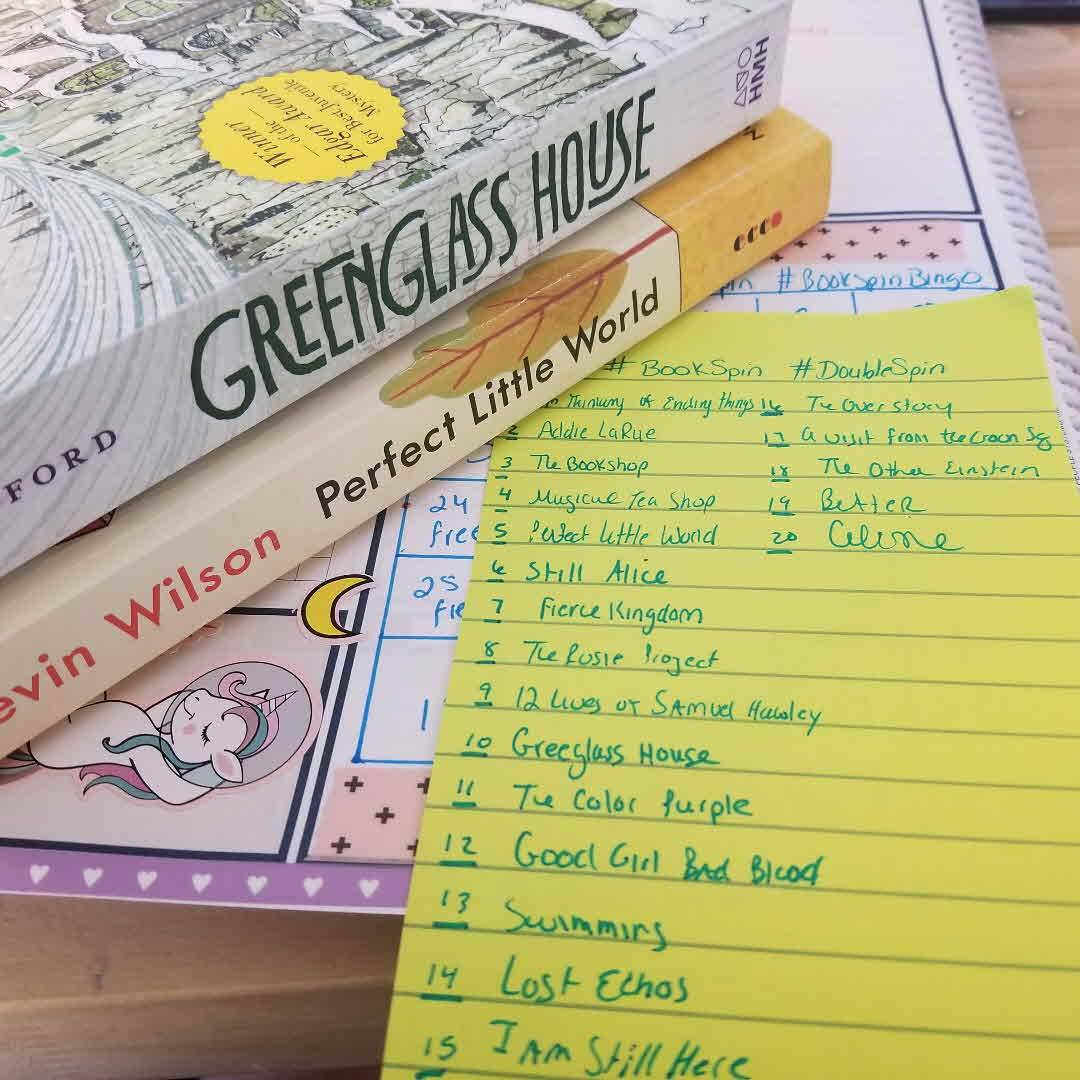 Winner
of the
Edgar Award
for Best Juvenile
Mystery
HMH
GREENGLASS HOUSE
FORD
ecco
Perfect Little World
evin Wilson
#BookSpinBingo
24
free
25
# BookSpin #DoubleSpin
Thinking of Ending things
2 Addie LaRue
3 The Bookshop
4 Magical Tea Shop
5 Perfect Little World
6 Still Alice
7 Fierce Kingdom
8 The Rosie Project
9 12 Lives of Samuel Hawley
10 Greeglass House
11 The Color Purple
12 Good Girl Bad Blood
13 Swimming
14 Lost Echos
15 I Am Still Here
16 The Overstory
17 a visit from the Goon Sq
18 The Other Einstein
19 Better
20 Celine